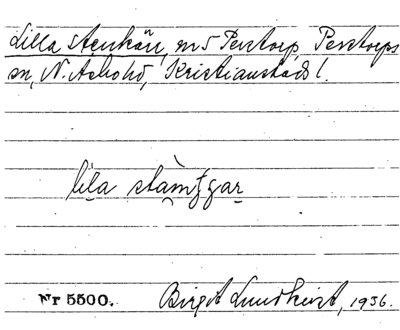 Lilla Stenkärr, m 5 Perstorp, Perstorps
sn, N. Åsbo hd, Kristianstads l.
lila
Nr 5500.
Birgit Lundkvist, 1936.